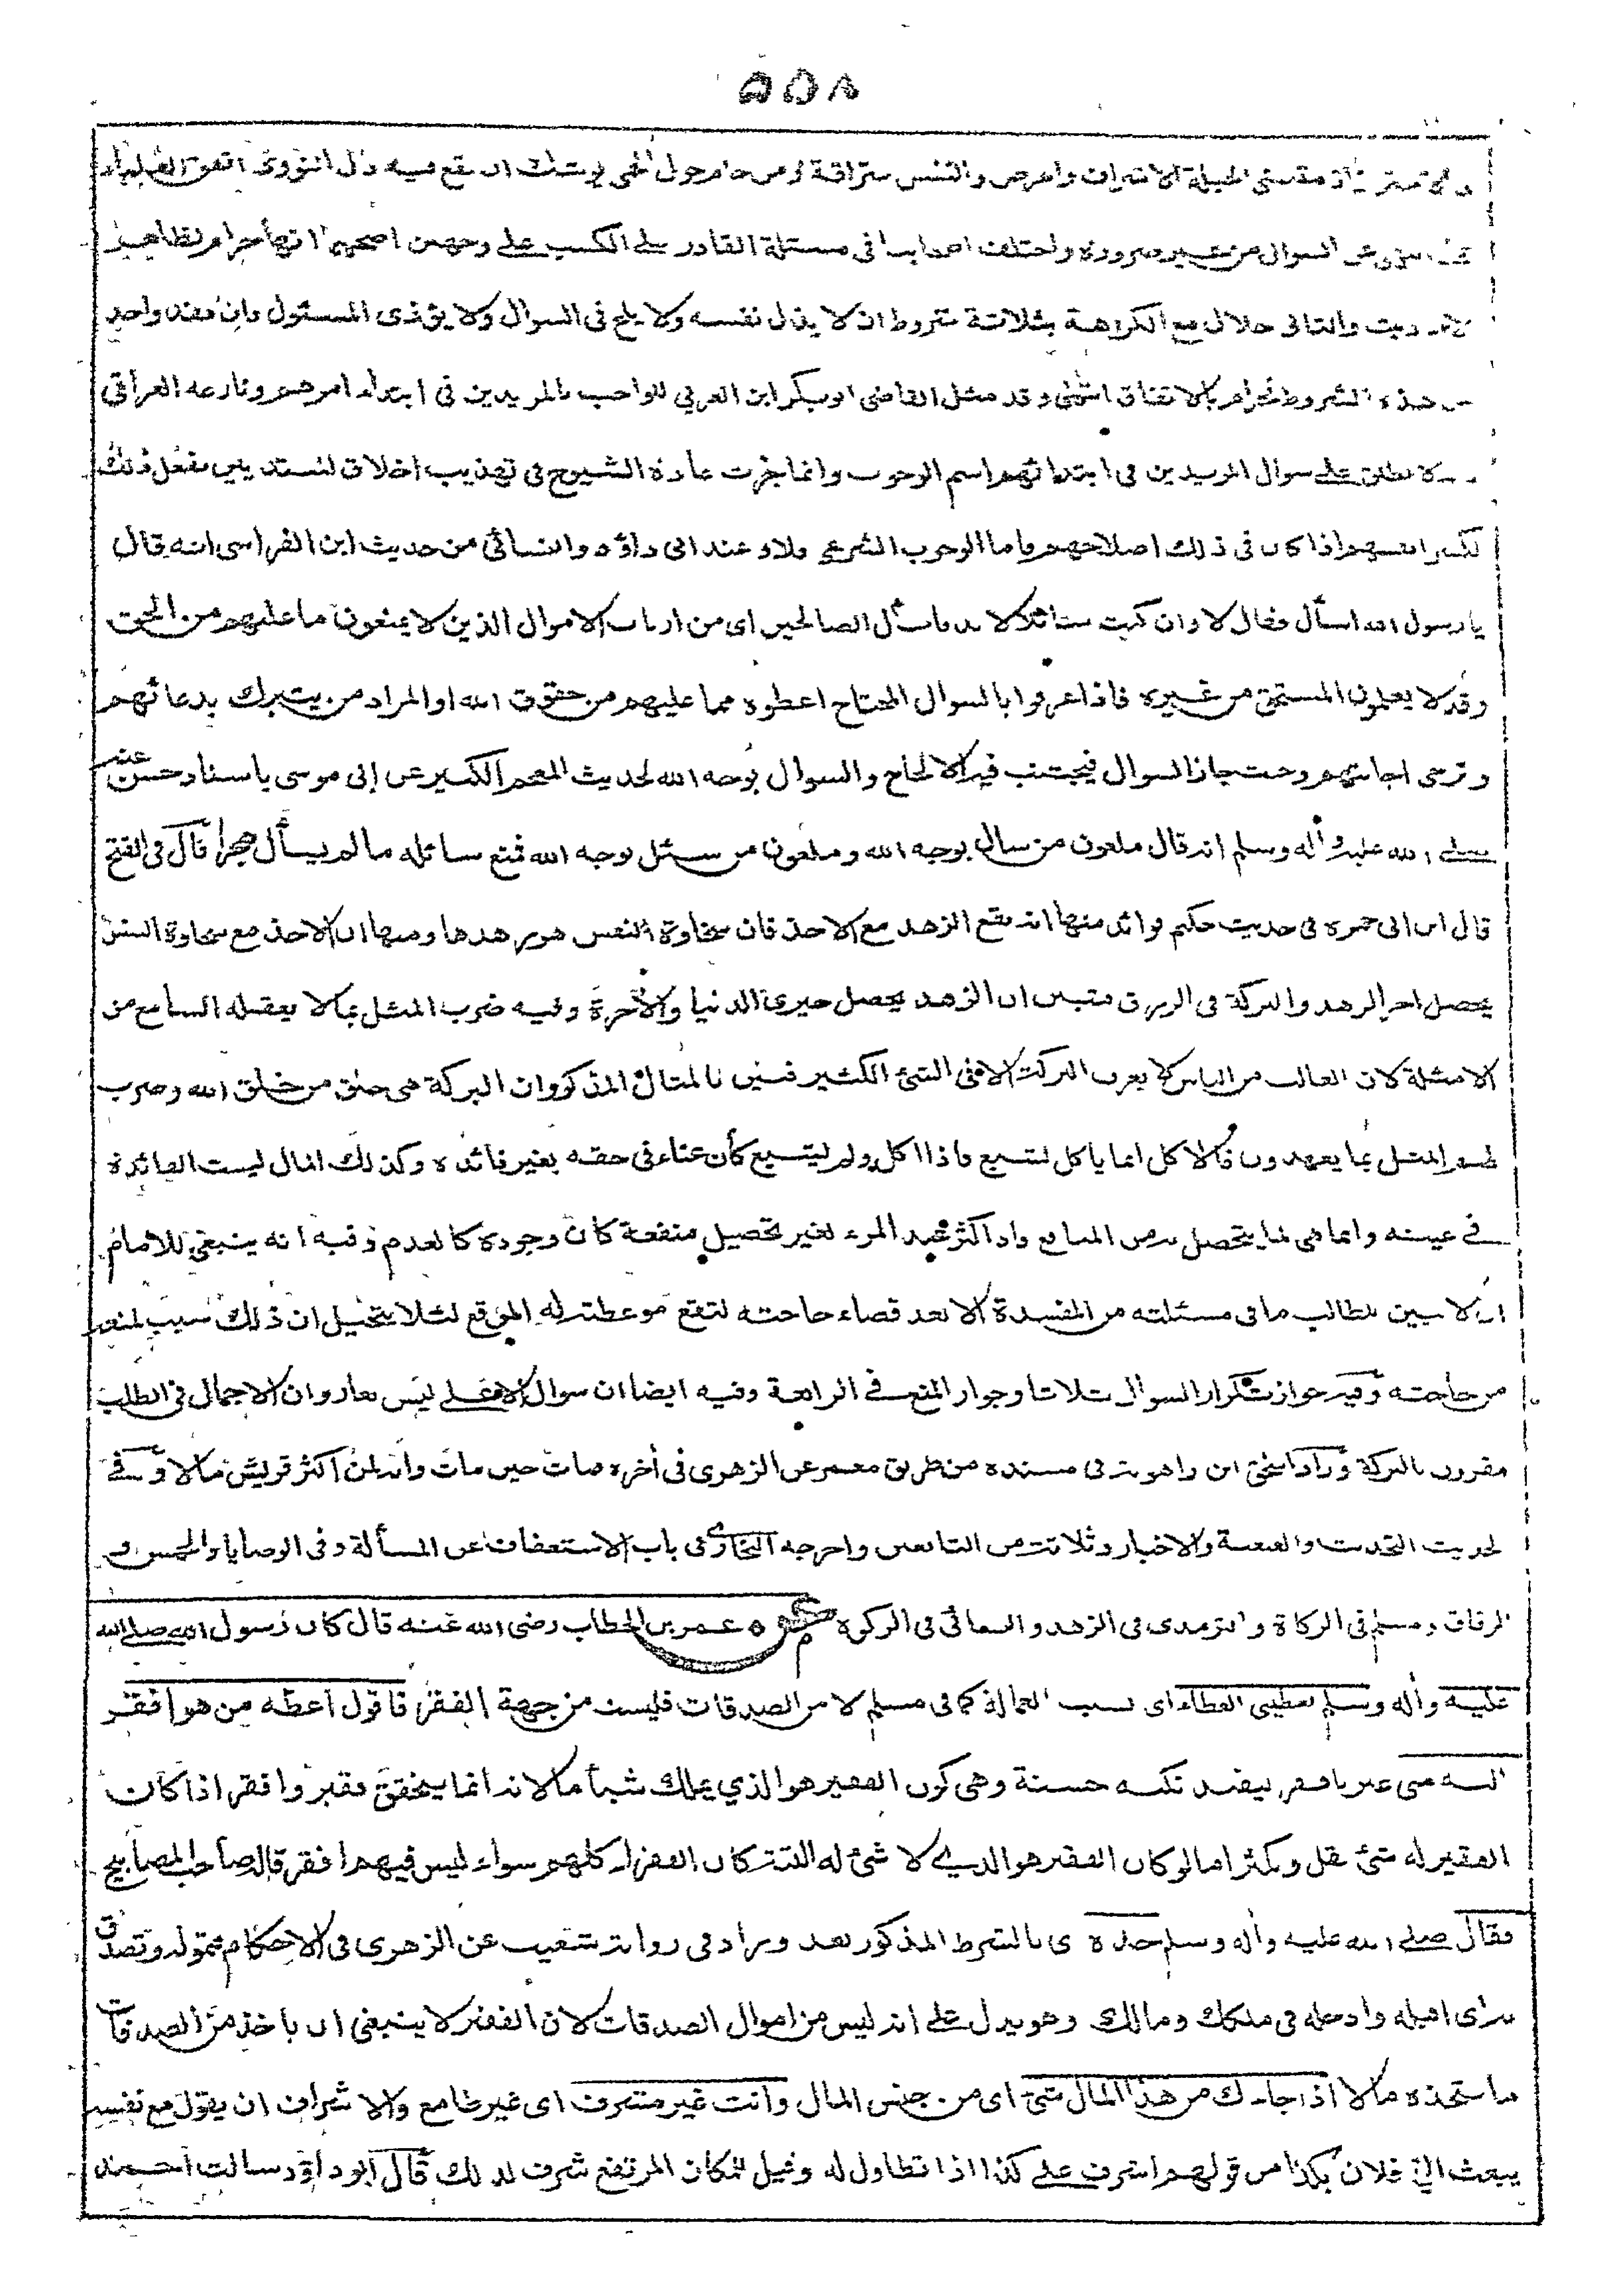 ٥٥٨
مقتضى الجبلة الاشراف والحرص والنفس سراقة ومن حام حول الحمى يوشك ان يقع فيه قال النووى اتفق العلماء
السوال من غير ضرورة واختلف اصحابنا فى مسئلة القادر على الكسب على وجهين اصحهما انها حرام لظاهر
الاحاديث والثانى حلال مع الكراهة بثلاثة شروط ان لا يذل نفسه ولا يلح فى السوال ولا يؤذى المسئول فان فقد واحد
من هذه الشروط فحرام بالاتفاق انتهى وقد مثل القاضى ابوبكر ابن العربى للواجب بالمريدين فى ابتداء امرهم ونازعه العراقى
لا يطلق على سوال المريدين فى ابتدائهم اسم الوجوب وانما جرت عادة الشيوخ فى تهذيب اخلاق المبتديين بفعل ذلك
لكسر انفسهم اذا كان فى ذلك اصلاحهم فاما الوجوب الشرعى فلا وعند ابى داؤد والنسائى من حديث ابن الفراسى انه قال
يا رسول الله اسأل فقال لا وان كنت سائلا لا بد فاسأل الصالحين اى من ارباب الاموال الذين لا يمنعون ما عليهم من الحق
وقد لا يعلمون المستحق من غيره فاذا عرفوا بالسوال المحتاج اعطوه مما عليهم من حقوق الله او المراد من يتبرك بدعائهم
وترجى اجابتهم وحيث جاز السوال فيجتنب فيه الالحاح والسوال بوجه الله لحديث المعجم الكبير عن ابى موسى باسناد حسن عنه
صلى الله عليه وأله وسلم انه قال ملعون من سال بوجه الله وملعون من سئل بوجه الله فمنع سائله ما لم يسأل هجرا قال فى الفتح
قال ابن ابى جمرة فى حديث حكيم فوائد منها انه يقع الزهد مع الاخذ فان سخاوة النفس هو زهدها ومنها ان الاخذ مع سخاوة النفس
يحصل اجر الزهد والبركة فى الرزق فتبين ان الزهد يحصل خيرى الدنيا والأخرة وفيه ضرب المثل بما لا يعقله السامع من
الامثلة لان الغالب من الناس لا يعرف البركة الا فى الشئ الكثير فبين بالمثال المذكور ان البركة هى خلق من خلق الله وضرب
لهم المثل بما يعهدون فالأكل انما ياكل ليشبع فاذا اكل ولم يشبع كان عناء فى حقه بغير فائدة وكذلك المال ليست الفائدة
فى عينه وانما هى لما يتحصل به من المنافع واذا كثر عند المرء لغير تحصيل منفعة كان وجوده كالعدم وفيه انه ينبغى للامام
ان لا يبين للطالب ما فى مسئلته من المفسدة الا بعد قضاء حاجته لتقع موعظته له الموقع لئلا يتخيل ان ذلك سبب لمنعه
من حاجته وفيه جواز تكرار السوال ثلاثا وجواز المنع فى الرابعة وفيه ايضا ان سوال الاعلى ليس بعار وان الاجمال فى الطلب
مقرون بالبركة وزاد اسحق ابن راهويه فى مسنده من طريق معمر عن الزهرى فى أخره فمات حين مات وانه لمن اكثر قريش مالا وفى
الحديث التحديث والعنعنة والاخبار وثلاثة من التابعين واخرجه البخارى فى باب الاستعفاف عن المسألة وفى الوصايا والخمس و
الرقاق ومسلم فى الزكاة والترمذى فى الزهد والنسائى فى الزكوة عن عمر بن الخطاب رضى الله عنه قال كان رسول الله صلى الله
عليه وأله وسلم يعطينى العطاء اى بسبب العمالة كما فى مسلم لا من الصدقات فليست من جهة الفقر فاقول اعطه من هو افقر
اليه منى عبر بافقر ليفيد نكتة حسنة وهى كون الفقير هو الذى يملك شيأ ما لانه انما يتحقق فقير وافقر اذا كان
الفقير له شئ يقل ويكثر اما لو كان الفقير هو الذى لا شئ له البتة كان الفقراء كلهم سواء ليس فيهم افقر قاله صاحب المصابيح
فقال صلى الله عليه وأله وسلم خذه اى بالشرط المذكور بعد وزاد فى رواية شعيب عن الزهرى فى الاحكام فتموله وتصدق
به اى اقبله وادخله فى ملكك ومالك وهو يدل على انه ليس من اموال الصدقات لان الفقير لا ينبغى ان ياخذ من الصدقات
ما يتخذه مالا اذا جاءك من هذا المال شئ اى من جنس المال وانت غير مشرف اى غير طامع والاشراف ان يقول مع نفسه
يبعث الى فلان بكذا من قولهم اشرف على كذا اذا تطاول له وقيل للمكان المرتفع شرف لذلك قال ابو داؤد سالت احمد